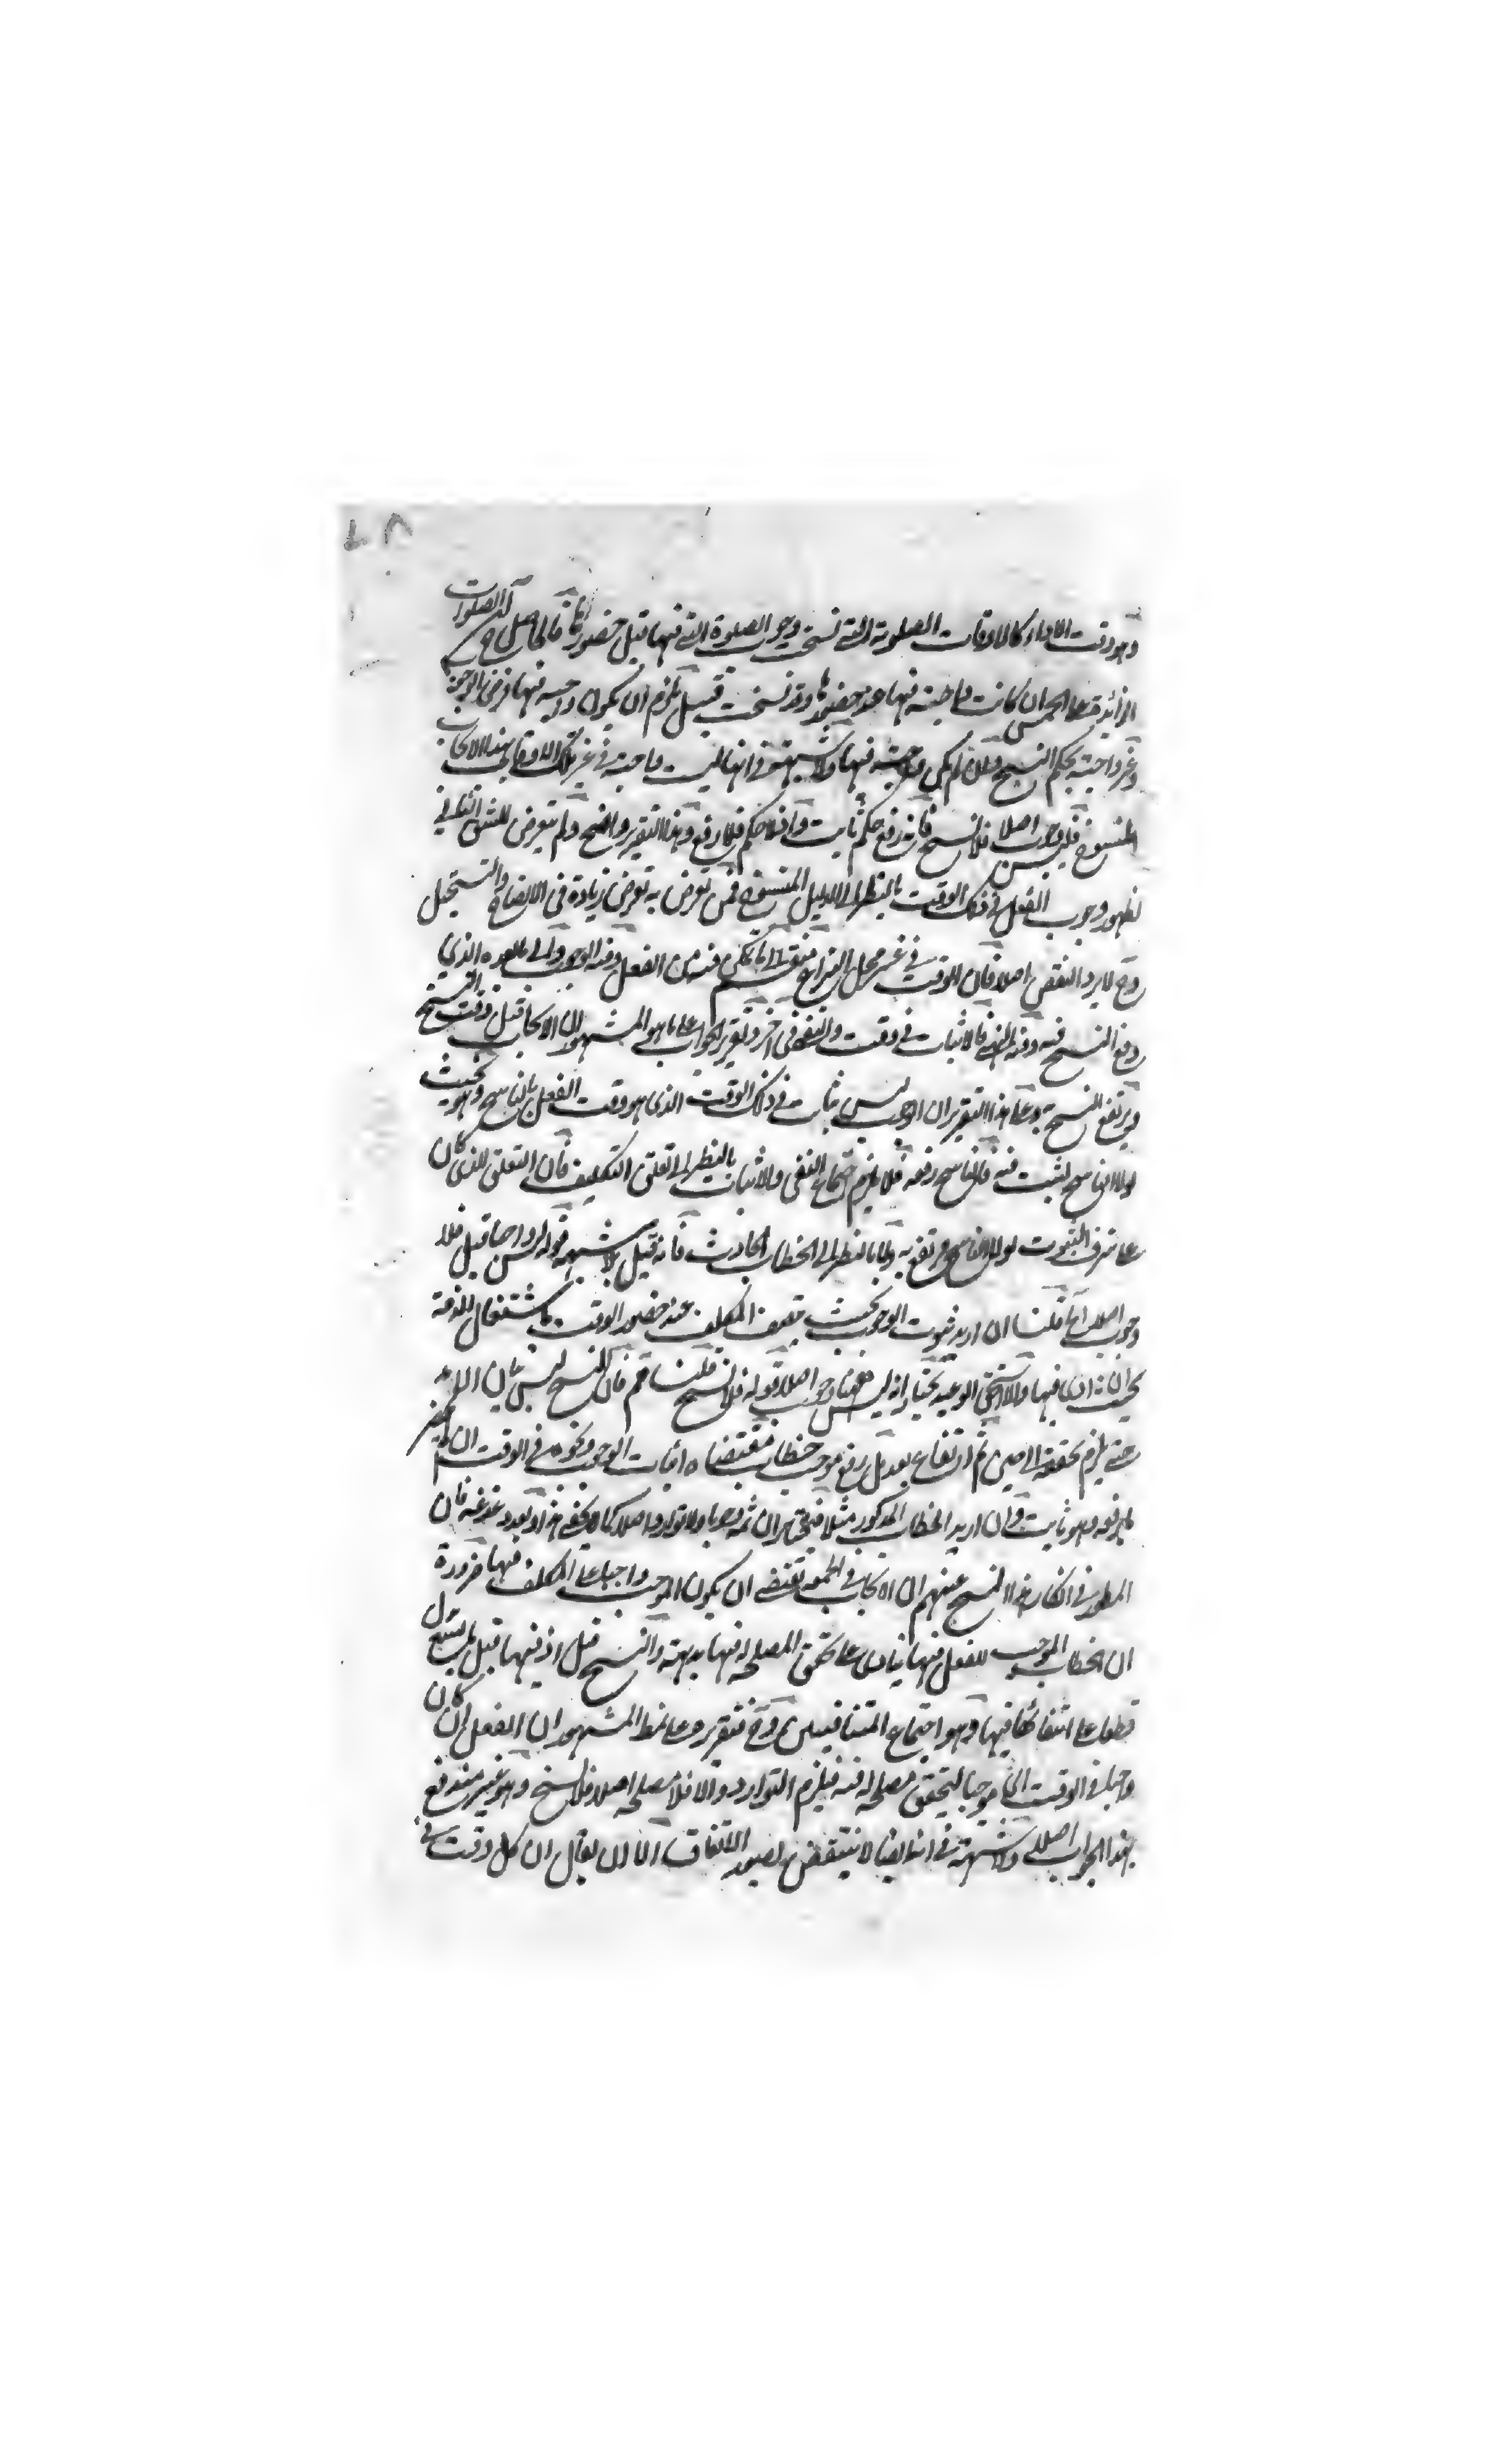 وهو وقت الاداء كالاوقات الصلوتية التي نسخت وجوب الصلوة التي فيها قبل حضورها فالحاصل ان الصلوات
الزائدة على الخمس ان كانت واجبة فيها عند حضورها وقد نسخت قبل يلزم ان يكون واجبة فيها
وغير واجبة بحكم النسخ وان لم يكن واجبة فيها ولا شبهة في انها ليست واجبة في غير تلك الاوقات بهذا الايجاب
المنسوخ فليس وجوب اصلا فلا نسخ فانه رفع حكم ثابت واذ لا حكم فلا رفع وهذا التقرير واضح ولم يتعرض للشق الثاني
لظهور وجوب الفعل في ذلك الوقت بالنظر الى الدليل المنسوخ فمن تعرض به تعرض زيادة في الايضاح
وح لا يرد النقض اصلا فان الوقت في غير محل النزاع منقسم الى ما تمكن فيه من الفعل وفيه الوجوب والى ما بعده الذي
وقع النسخ فيه وفيه النهي فالاثبات في وقت والنفي في اخر وتقرير الجواب على ما هو المشهور ان الايجاب قبل وقت النسخ
ويرتفع بالنسخ وعلى هذا التقرير ان الوجوب ليس بثابت في ذلك الوقت الذي هو وقت الفعل بالناسخ وهو بحيث
لولا الناسخ لثبت فيه فالناسخ رفعه فلا يلزم اجتماع النفي والاثبات بالنظر الى تعلق التكليف فان التعلق الذي كان
على شرف الثبوت لولا الناسخ ارتفع به واما بالنظر الى الخطاب الحادث فانه قبل بلا شبهة قوله وليس واجبا قبل فلا
وجوب اصلا الخ قلنا ان اريد ثبوت الوجوب بحيث المكلف عند حضور الوقت باشتغال الذمة
بحيث ان ادى فيها والا استحق الوعيد نختار انه ليس ههنا وجوب اصلا قوله فلا نسخ قلنا ثم فان النسخ ليس بيان الامد
حتى يلزم تحققه الى حين ثم ارتفاع بعد بل رفع موجب خطاب مقتضاه اثبات الوجوب ونحوه في الوقت
ما يرفعه وهو ثابت وان اريد الخطاب المذكور مثلا فنختار ان ثمه وجوبا ولا توارد اصلا كما لا يخفى هذا وبعد دغدغة فان
المطلوب في انكار هذا النسخ عنهم ان الايجاب في الجمعة يقتضي ان يكون الموجب واجبا على المكلف فيها ضرورة
ان الخطاب الموجب للفعل فيها بيان على تحقق المصلحة فيها بديهة والنسخ قبل
قطعا على انتفائها فيها وهو اجتماع المتنافيين وح فتقريره على نمط المشهور ان الفعل ان كان
واجبا في الوقت اي موجبا لتحقق مصلحة فيه فيلزم التوارد والا فلا مصلحة اصلا فلا نسخ وهو غير مندفع
بهذا الجواب اصلا ولا شبهة في انه ايضا لا ينتقض بصور الاتفاق الا ان يقال ان كل وقت في